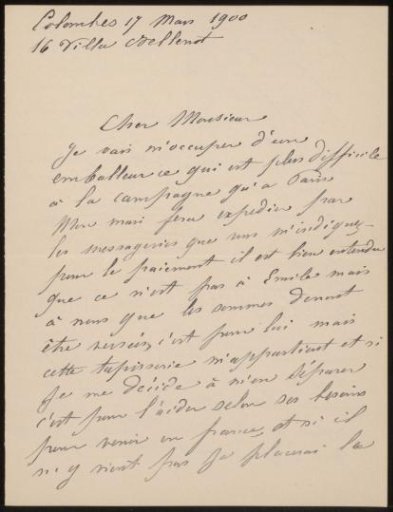 Colombes 17 Mars 1900
16 Villa
Cher Monsieur
Je vais m'occuper d'un
emballeur ce qui est plus difficile
à la campagne qu'a Paris
Mon mari fera expedier par
les messageries que vous m'indiquez
pour le paiement il est bien entendu
que ce n'est pas à Emile mais
à nous que les sommes devront
être versées, c'est pour lui mais
cette tapisserie m'appartient et si
je me décide à m'en séparer
c'est pour l'aider selon ses besoins
pour venir en france, et si il
n'y vient pas je placerai la